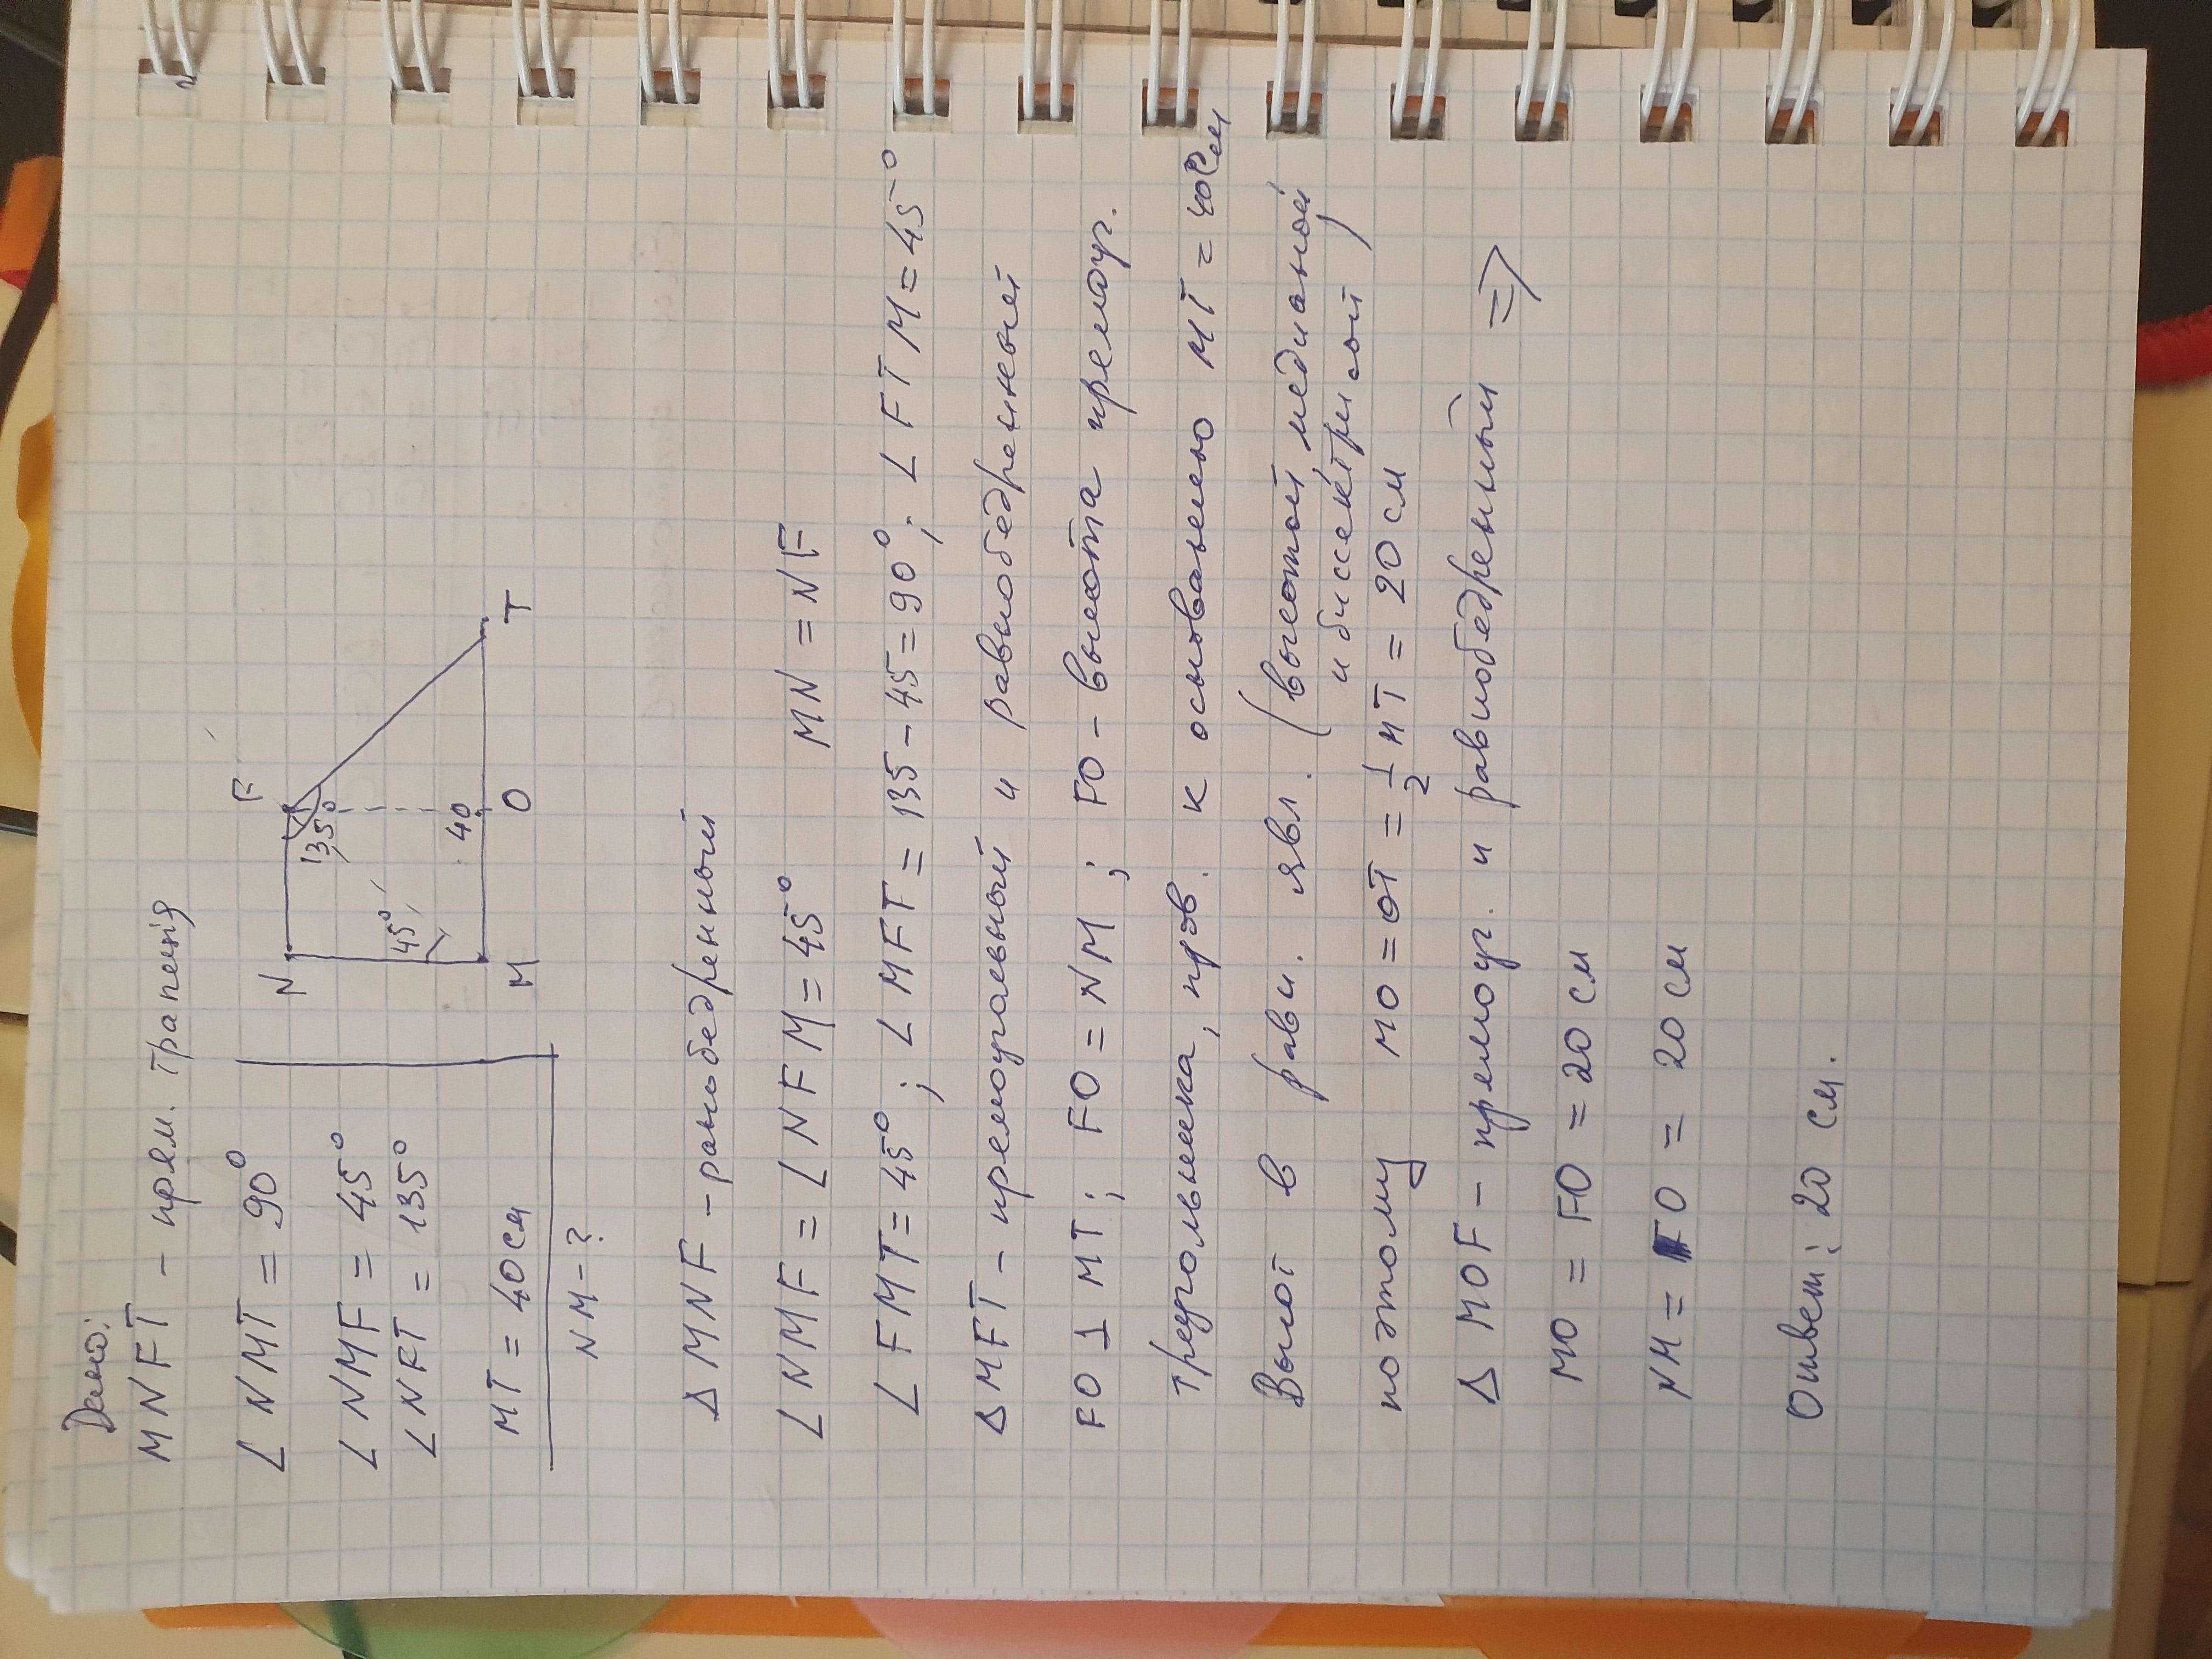 Дано:
MNFT - прям. трапеция
∠ NMT = 90°
∠ NMF = 45°
∠ NFT = 135°
MT = 40см
NM - ?
N
F
135°
45°
40
M
O
T
Δ MNF - равнобедренный
∠ NMF = ∠ NFM = 45° MN = NF
∠ FMT = 45° ; ∠ MFT = 135 - 45 = 90° ; ∠ FTM = 45°
Δ MFT - прямоугольный и равнобедренный
FO ⊥ MT ; FO = NM ; FO - высота прямоуг.
треугольника, пров. к основанию MT = 40см
Высот в равн. явл. (высотой медианой
и биссектрисой)
поэтому MO = OT = 1/2 MT = 20 см
Δ MOF - прямоуг. и равнобедренный ⇒
MO = FO = 20 см
NM = FO = 20 см
Ответ: 20 см.